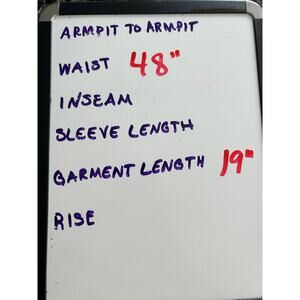 ARMPIT TO ARMPIT
WAIST 48"
INSEAM
SLEEVE LENGTH
GARMENT LENGTH 19"
RISE